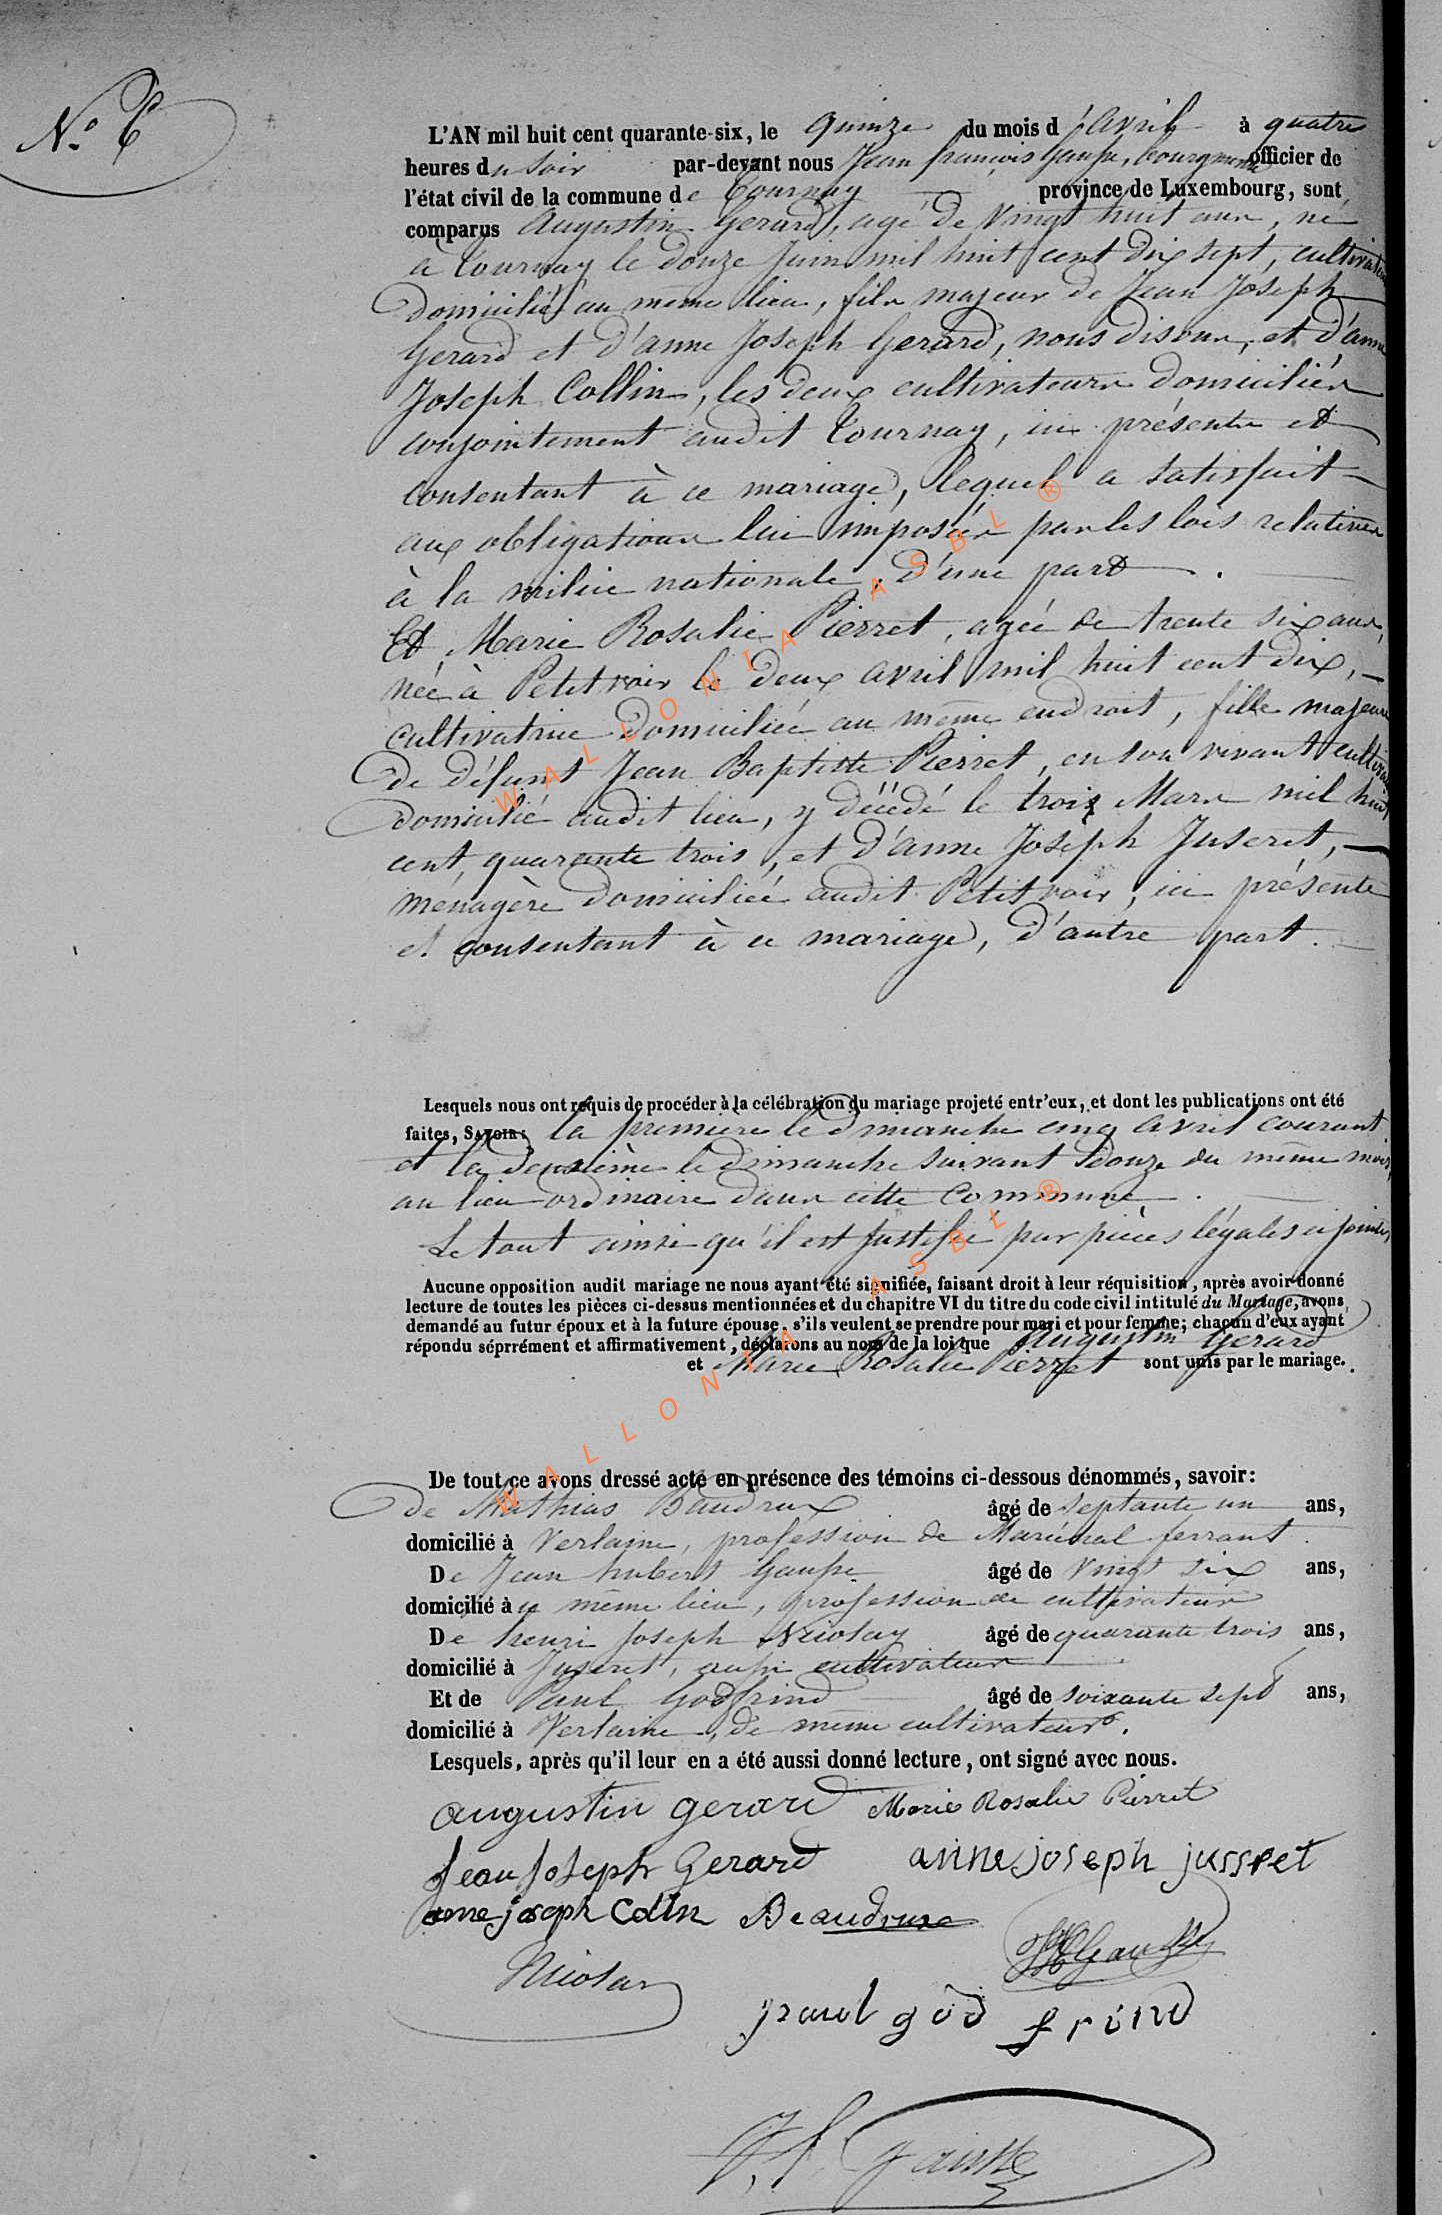 N.° 6
L'AN mil huit cent quarante-six, le quinze du mois d'avril à quatre
heures du soir par-devant nous Jean françois Gausse, bourgmestre officier de
l'état civil de la commune de Tournay province de Luxembourg, sont
comparus Augustin Gerard, agé de Vingt huit ans, né
à Tournay le douze Juin mil huit cent dix sept, cultivateur
domicilié au meme lieu, fils majeur de Jean Joseph
Gerard et d'anne Joseph Gerard, nous disons, et d'anne
Joseph Collin, les deux cultivateurs domiciliés
conjointement audit Tournay, ici présents et
consentant à ce mariage, lequel a satisfait
aux obligations lui imposées par les lois relatives
à la milice nationale, d'une part.
Et Marie Rosalie Pierret, agée de trente six ans,
née à Petitvoir le deux avril mil huit cent dix,
cultivatrice domiciliée au même endroit, fille majeure
de défunt Jean Baptiste Pierret, en son vivant cultivateur
domicilié audit lieu, y décédé le trois Mars mil huit
cent quarante trois, et d'anne Joseph Juseret,
ménagère domiciliée audit Petitvoir, ici présente
et consentant à ce mariage, d'autre part.
Lesquels nous ont requis de procéder à la célébration du mariage projeté entr'eux, et dont les publications ont été
faites, SAVOIR: la première le dimanche cinq avril courant
et la deuxième le dimanche suivant douze du même mois,
au lieu ordinaire dans cette Commune.
Le tout ainsi qu'il est justifié par pièces légales ci jointes
Aucune opposition audit mariage ne nous ayant été signifiée, faisant droit à leur réquisition, après avoir donné
lecture de toutes les pièces ci-dessus mentionnées et du chapitre VI du titre du code civil intitulé du Mariage, avons
demandé au futur époux et à la future épouse, s'ils veulent se prendre pour mari et pour femme; chacun d'eux ayant
répondu séprrément et affirmativement, déclarons au nom de la loi que Augustin Gerard
et Marie Rosalie Pierret sont unis par le mariage.
De tout ce avons dressé acte en présence des témoins ci-dessous dénommés, savoir:
de Mathias Baudrux âgé de septante un ans,
domicilié à Verlaine, profession de Maréchal ferrant.
De Jean hubert Gausse âgé de vingt six ans,
domicilié à ce même lieu, profession de cultivateur
De henri Joseph Nicolay âgé de quarante trois ans,
domicilié à Juseret, aussi cultivateur.
Et de Paul Godfrind âgé de soixante sept ans,
domicilié à Verlaine, de même cultivateur.
Lesquels, après qu'il leur en a été aussi donné lecture, ont signé avec nous.
augustin gerard Marie Rosalie Pierret
Jean Joseph Gerard anne joseph jusseret
anne joseph Colin Beaudruxe
JH Gausse
Nicolay
paul god frind
J. f. gausse
WALLONIA ASBL ®
WALLONIA ASBL ®